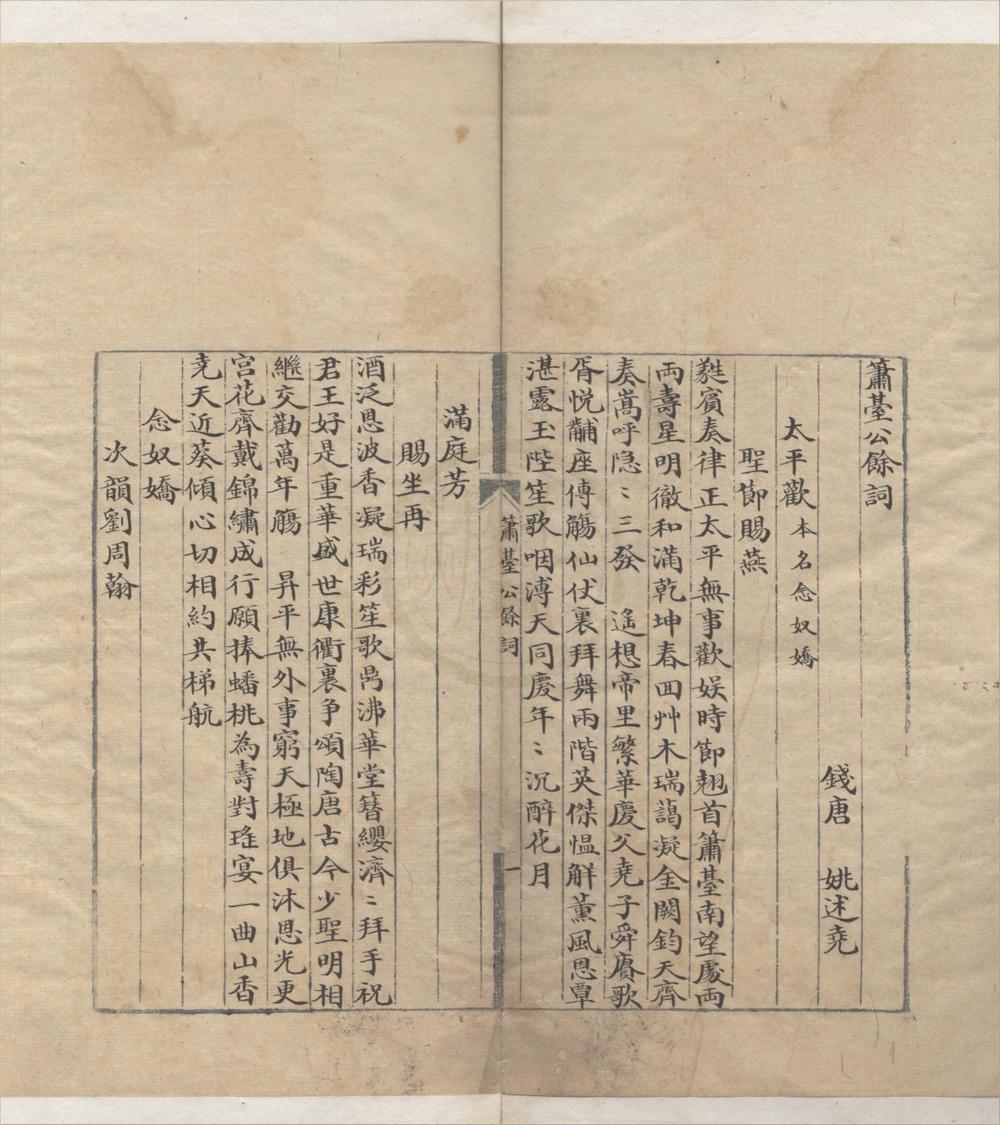 簫臺公餘詞
錢唐　姚述堯
太平歡本名念奴嬌
聖節賜燕
蕤賓奏律正太平無事歡娛時節翹首簫臺南望處兩
兩壽星明徹和滿乾坤春回艸木瑞藹凝金闕鈞天齊
奏嵩呼隐〻三發　遥想帝里繁華慶父堯子舜賡歌
胥悅黼座傳觴仙仗裏拜舞兩階英傑愠解薰風恩覃
湛露玉陛笙歌咽溥天同慶年〻沉醉花月
簫臺公餘詞　一
滿庭芳
賜坐再
酒泛恩波香凝瑞彩笙歌鼎沸華堂簪纓濟〻拜手祝
君王好是重華盛世康衢裏争頌陶唐古今少聖明相
繼交勸萬年觴　昇平無外事窮天極地俱沐恩光更
宫花齊戴錦繡成行願捧蟠桃為壽對瑤宴一曲山香
尭天近葵傾心切相約共梯航
念奴嬌
次韻劉周翰